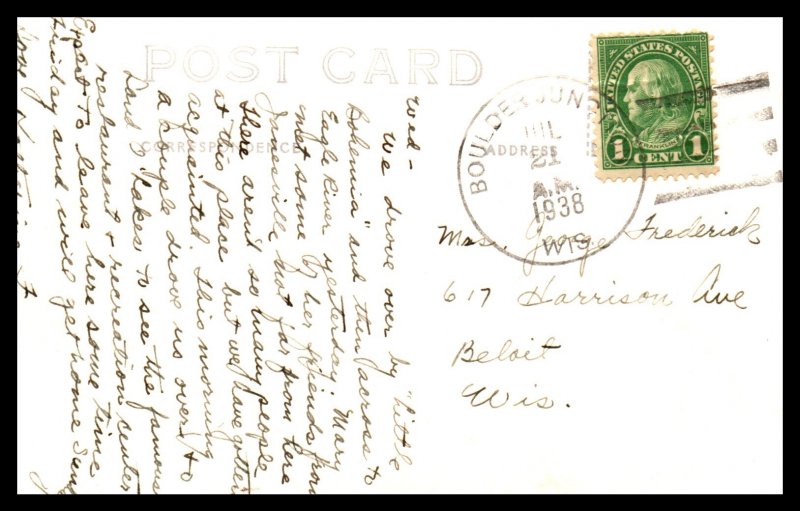 POST CARD
CORRESPONDENCE
ADDRESS
BOULDER JUN
JUL
21
A.M.
1938
WIS
UNITED STATES POSTAGE
FRANKLIN
1 CENT 1
Mrs. George Frederick
617 Harrison Ave
Beloit
Wis.
Wed-
We drove over by "Little
Bohemia" and then across to
Eagle River yesterday. Mary
met some of her friends from
Janesville not far from here
there aren't so many people
at this place but we have gotten
acquainted. This morning
a couple drove us over to
Land O Lakes to see the famous
restaurant & recreation center
Expect to leave here some time
Friday and will get home Sun
Love